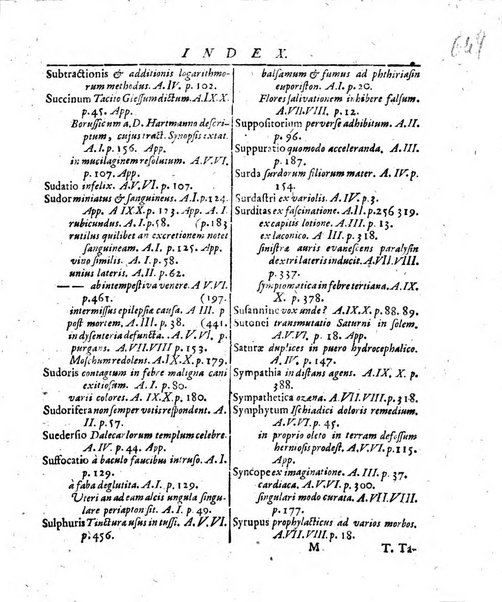 649
INDEX.
Subtractionis & additionis logarithmo-
rum methodus. A. IV. p. 102.
Succinum Tacito Gieſſum dictum. A. IX. X
p. 45. App.
Boruſſicum a D. Hartmanno deſcri-
ptum, cujus tract. Synopſis extat.
A. I. p. 156. App.
in mucilaginem reſolutum. A. V. VI.
p. 107. App.
Sudatio infelix. A. V. VI. p. 107.
Sudor miniatus & ſanguineus. A. I. p. 124.
App. A IX. X. p. 123. App. A. I
rubicundus. A. I. p. 58. (p. 183
rutilus quilibet an excretionem notet
ſanguineam. A. I. p. 125. App.
vino ſimilis. A. I. p. 58.
unius lateris. A. II. p. 62.
—— ab intempeſtiva venere. A. V. VI.
p. 461. (197.
intermiſſus epilepſiæ cauſa. A. III. p
poſt mortem. A. III. p. 38. (441.
in dyſenteria defuncta. A. V. VI. p.
purgans. A. VII. VIII. p. 53.
Moſchum redolens. A. IX. X. p. 179.
Sudoris contagium in febre maligna cani
exitioſum. A. I. p. 80.
varii colores. A. IX. X. p. 180.
Sudorifera non ſemper votis reſpondent. A.
II. p. 57.
Suederſio Dalecarlorum templum celebre.
A. IV. p. 44. App.
Suffocatio à baculo faucibus intruſo. A. I.
p. 129.
à faba deglutita. A. I. p. 129.
Uteri an ad eam alcis ungula ſingu-
lare periapton ſit. A. I. p. 55.
Sulphuris Tinctura uſus in tuſſi. A. V. VI.
p. 456.
balſamum & fumus ad phthiriaſin
euporiſton. A. I. p. 20.
Flores ſalivationem inhibere falſum.
A. VII. VIII. p. 12.
Suppoſitorium perverſe adhibitum. A. II.
p. 96.
Suppuratio quomodo acceleranda. A. III.
p. 187.
Surda ſurdorum filiorum mater. A. IV. p.
154.
Surdaſtri ex variolis. A. IV. p. 3.
Surditas ex faſcinatione. A. II. p. 256 319.
ex capitis lotione. A. III. p. 13.
ex laconico. A. III. p. 318.
ſiniſtræ auris evaneſcens paralyſin
dextri lateris inducit. A. VII. VIII.
p. 337.
ſymptomatica in febre tertiana. A. IX.
X. p. 378.
Suſannine vox unde? A. IX. X. p. 88. 89.
Sutonei transmutatio Saturni in ſolem.
A. V. VI. p. 18. App.
Saturæ duplices in puero hydrocephalico.
A. IV. p. 147.
Sympathia in diſtans agens. A. IX. X. p.
388.
Sympathetica ozæna. A. VII. VIII. p. 217.
Symphytum Iſchiadici doloris remedium.
A. V. VI. p. 45.
in proprio oleto in terram defoſſum
hernioſis prodeſt. A. VII. VIII. p.
Syncope ex imaginatione. A. III. p. 34.
ſingulari modo curata. A. VII. VIII.
p. 177.
Syrupus prophylacticus ad varios morbos.
A. VII. VIII. p. 18.
M T. Ta-